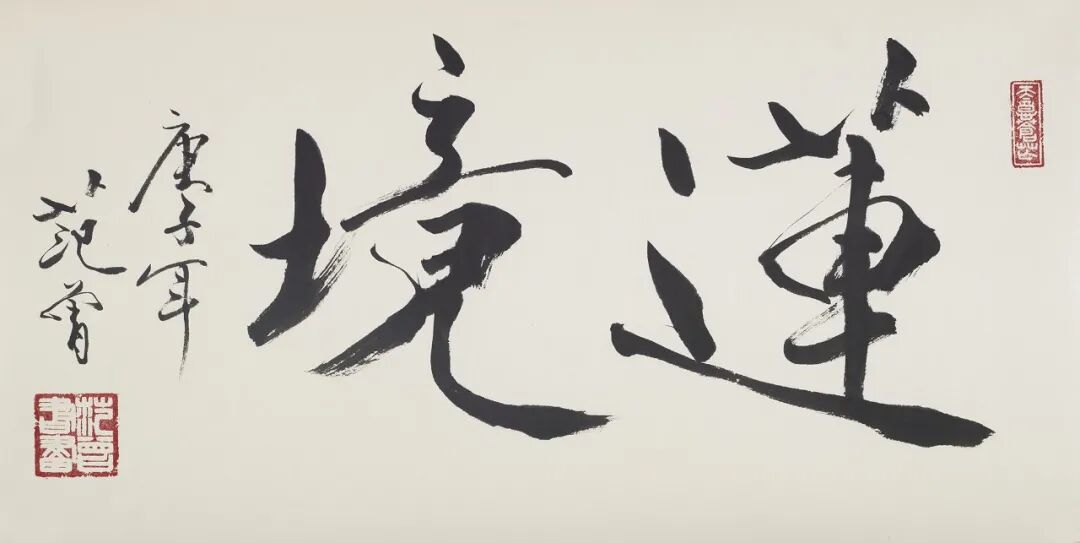 蓮境
庚子年
范曾
范曾書畫